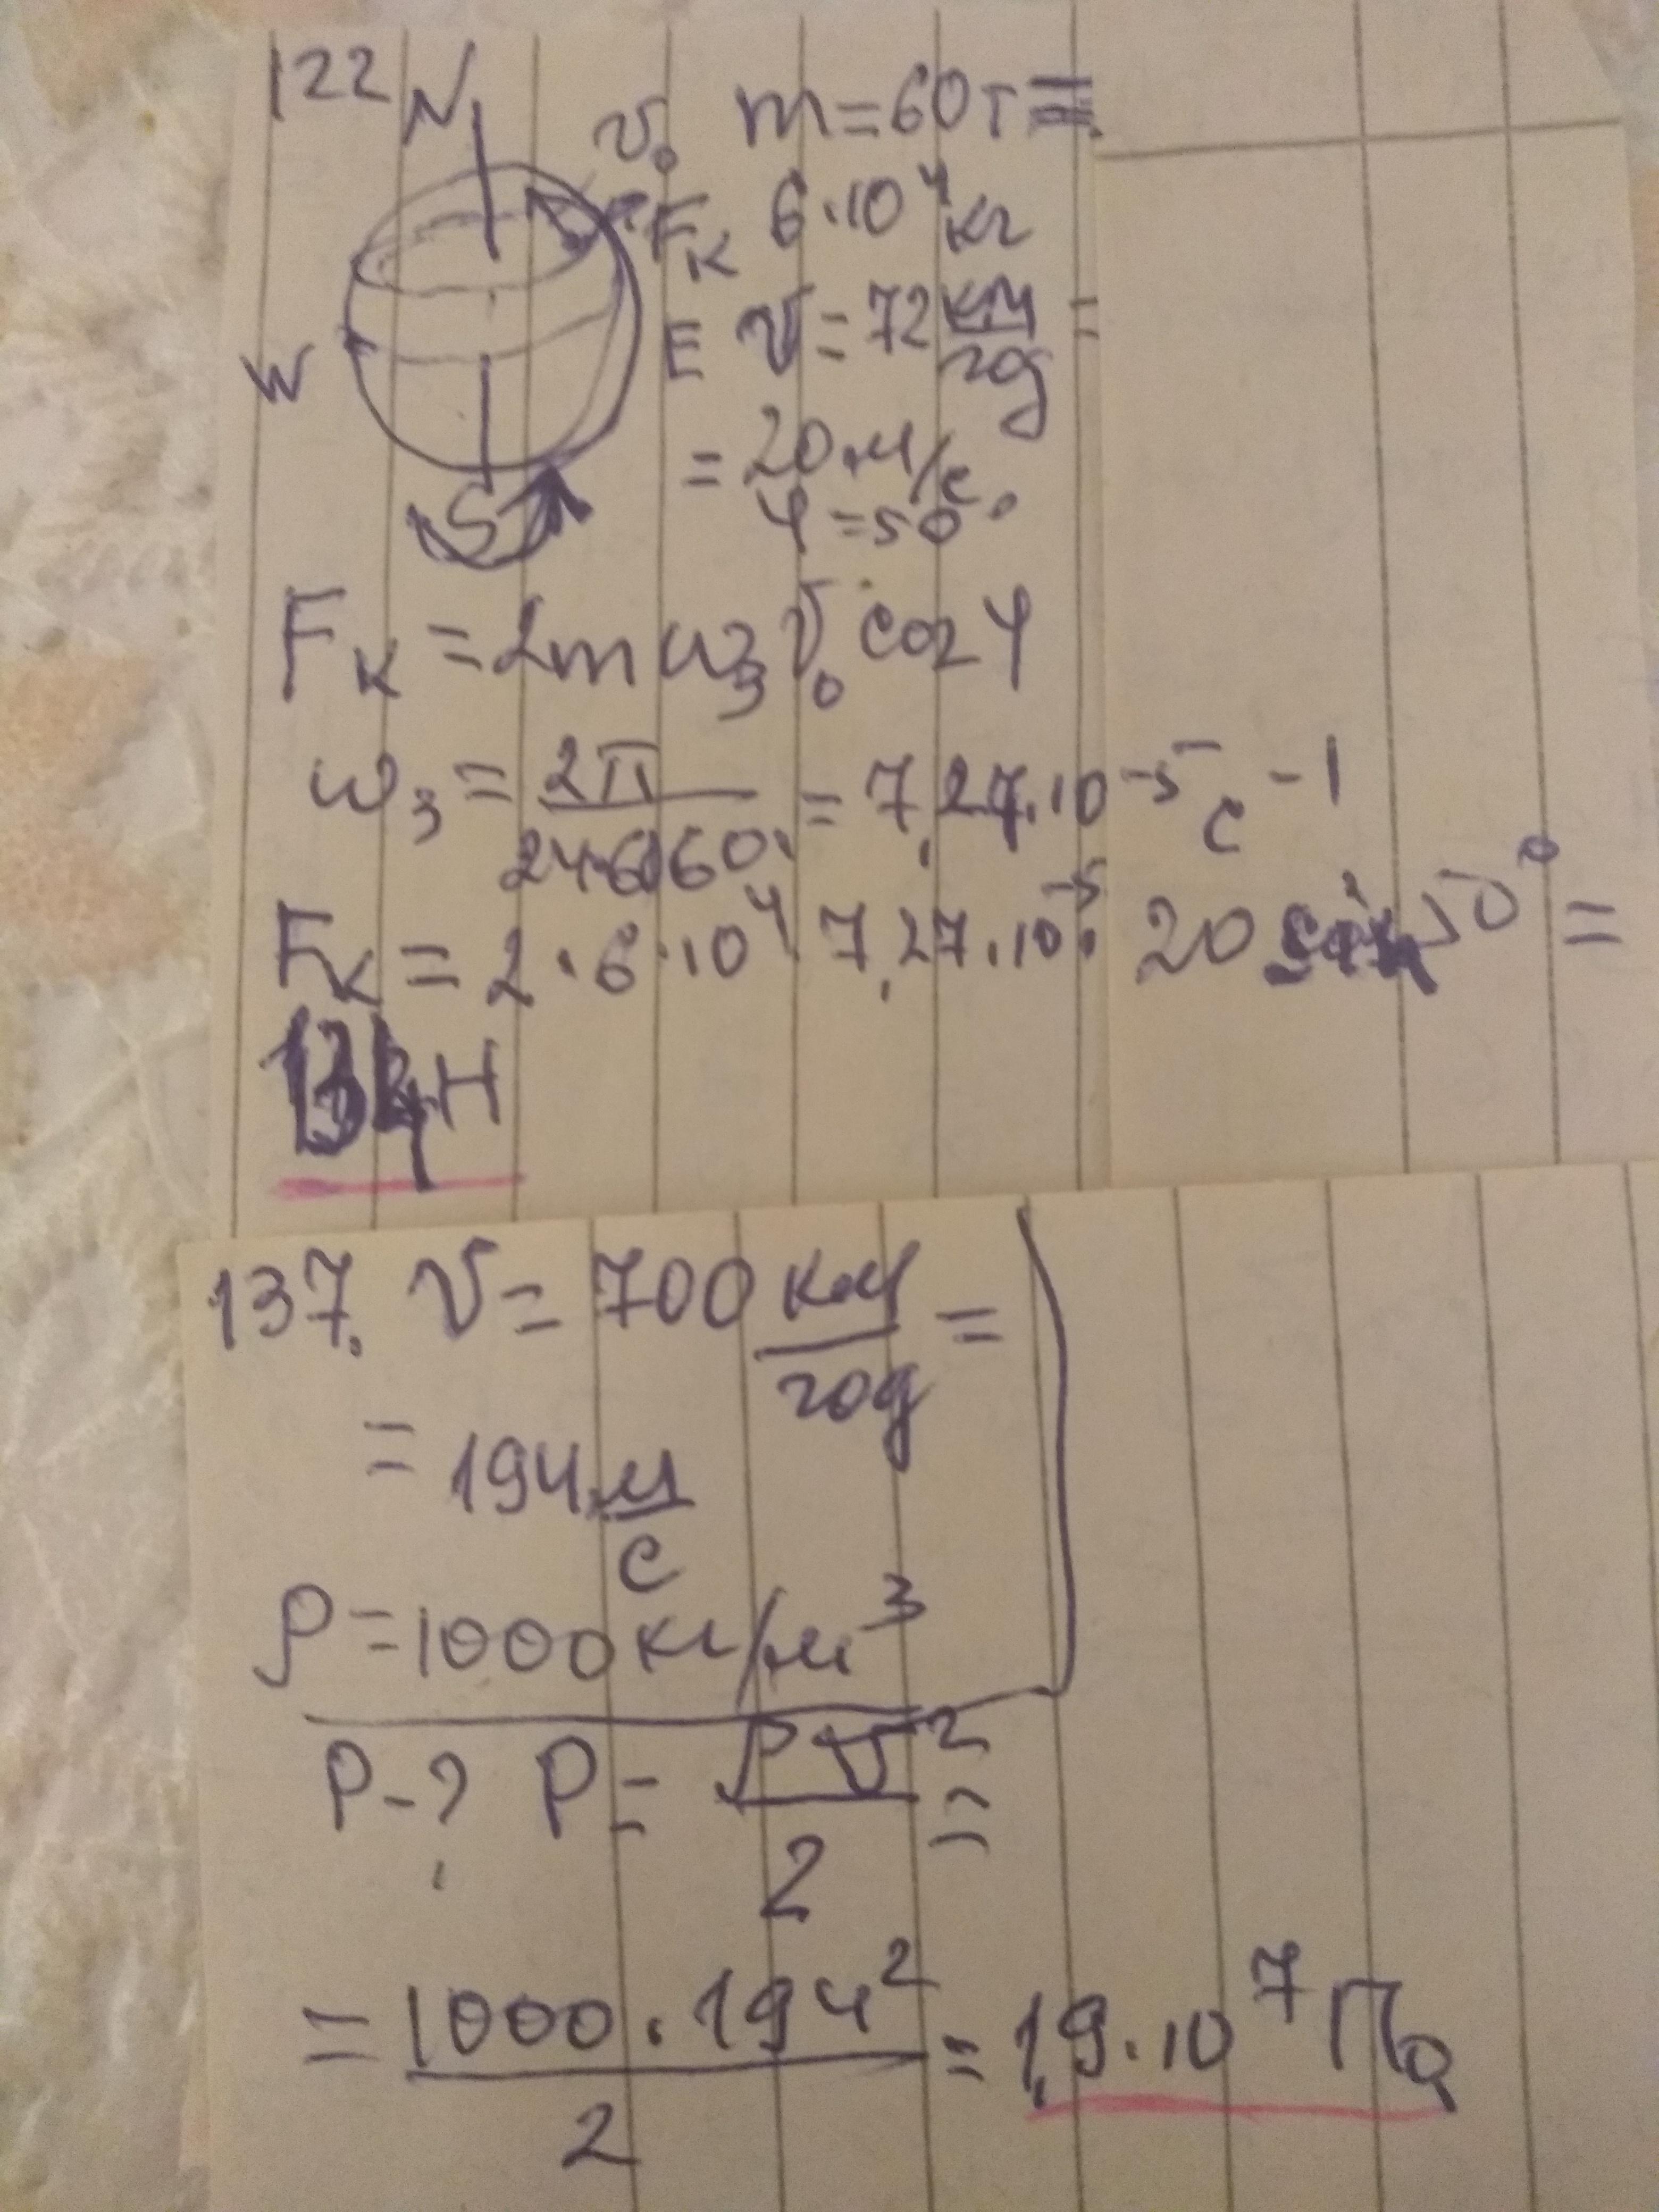 122 N
v₀ m=60т=
Fк 6·10⁴ кг
W E v=72 км/год =
= 20 м/с
S φ=50°
Fк = 2mω₃v₀ cos φ
ω₃ = 2π/24·60·60 = 7,27·10⁻⁵ с⁻¹
Fк = 2·6·10⁴·7,27·10⁻⁵·20 sin 50° =
134 Н
137. v = 700 км/год =
= 194 м/с
ρ=1000 кг/м³
P-? P = ρv²/2 =
= 1000·194²/2 = 1,9·10⁷ Па